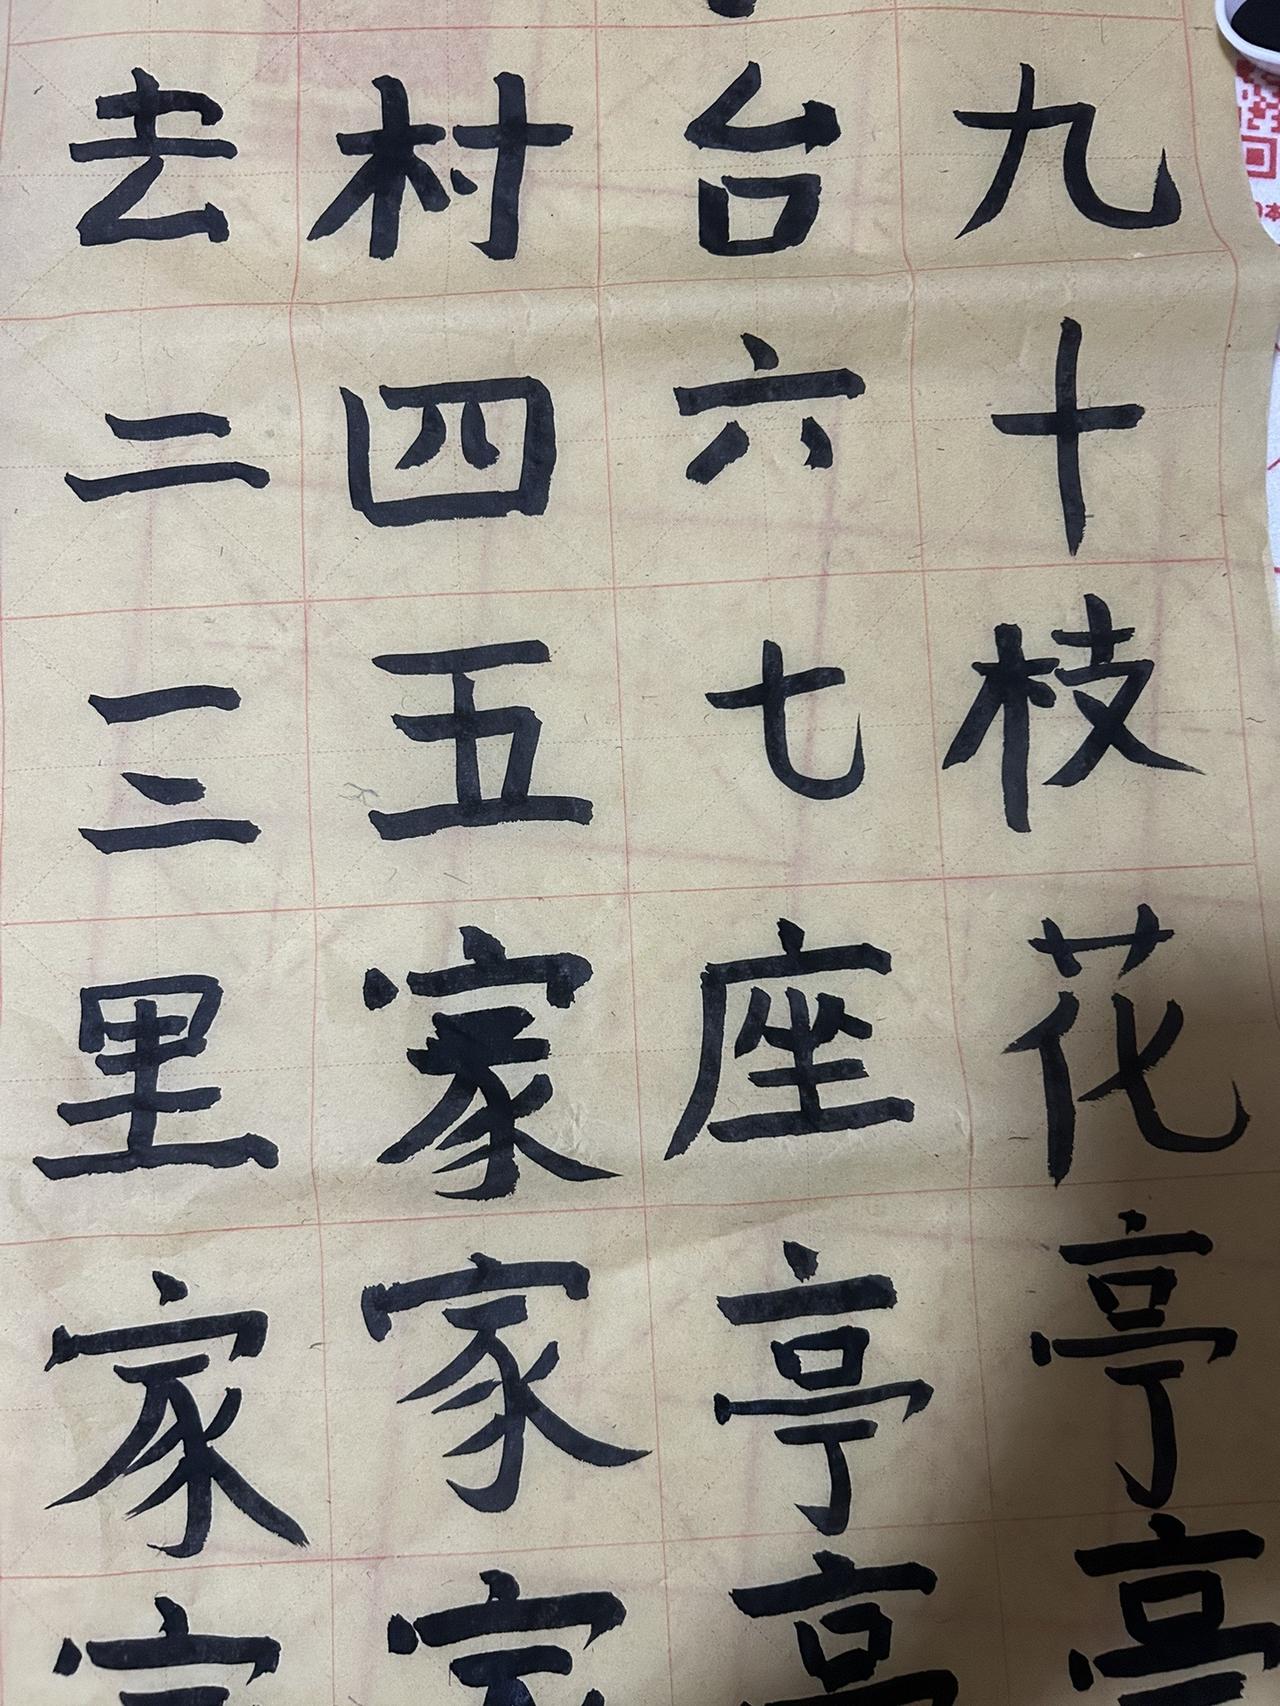 去二三里家
村四五家家
台六七座亭亭
九十枝花亭亭